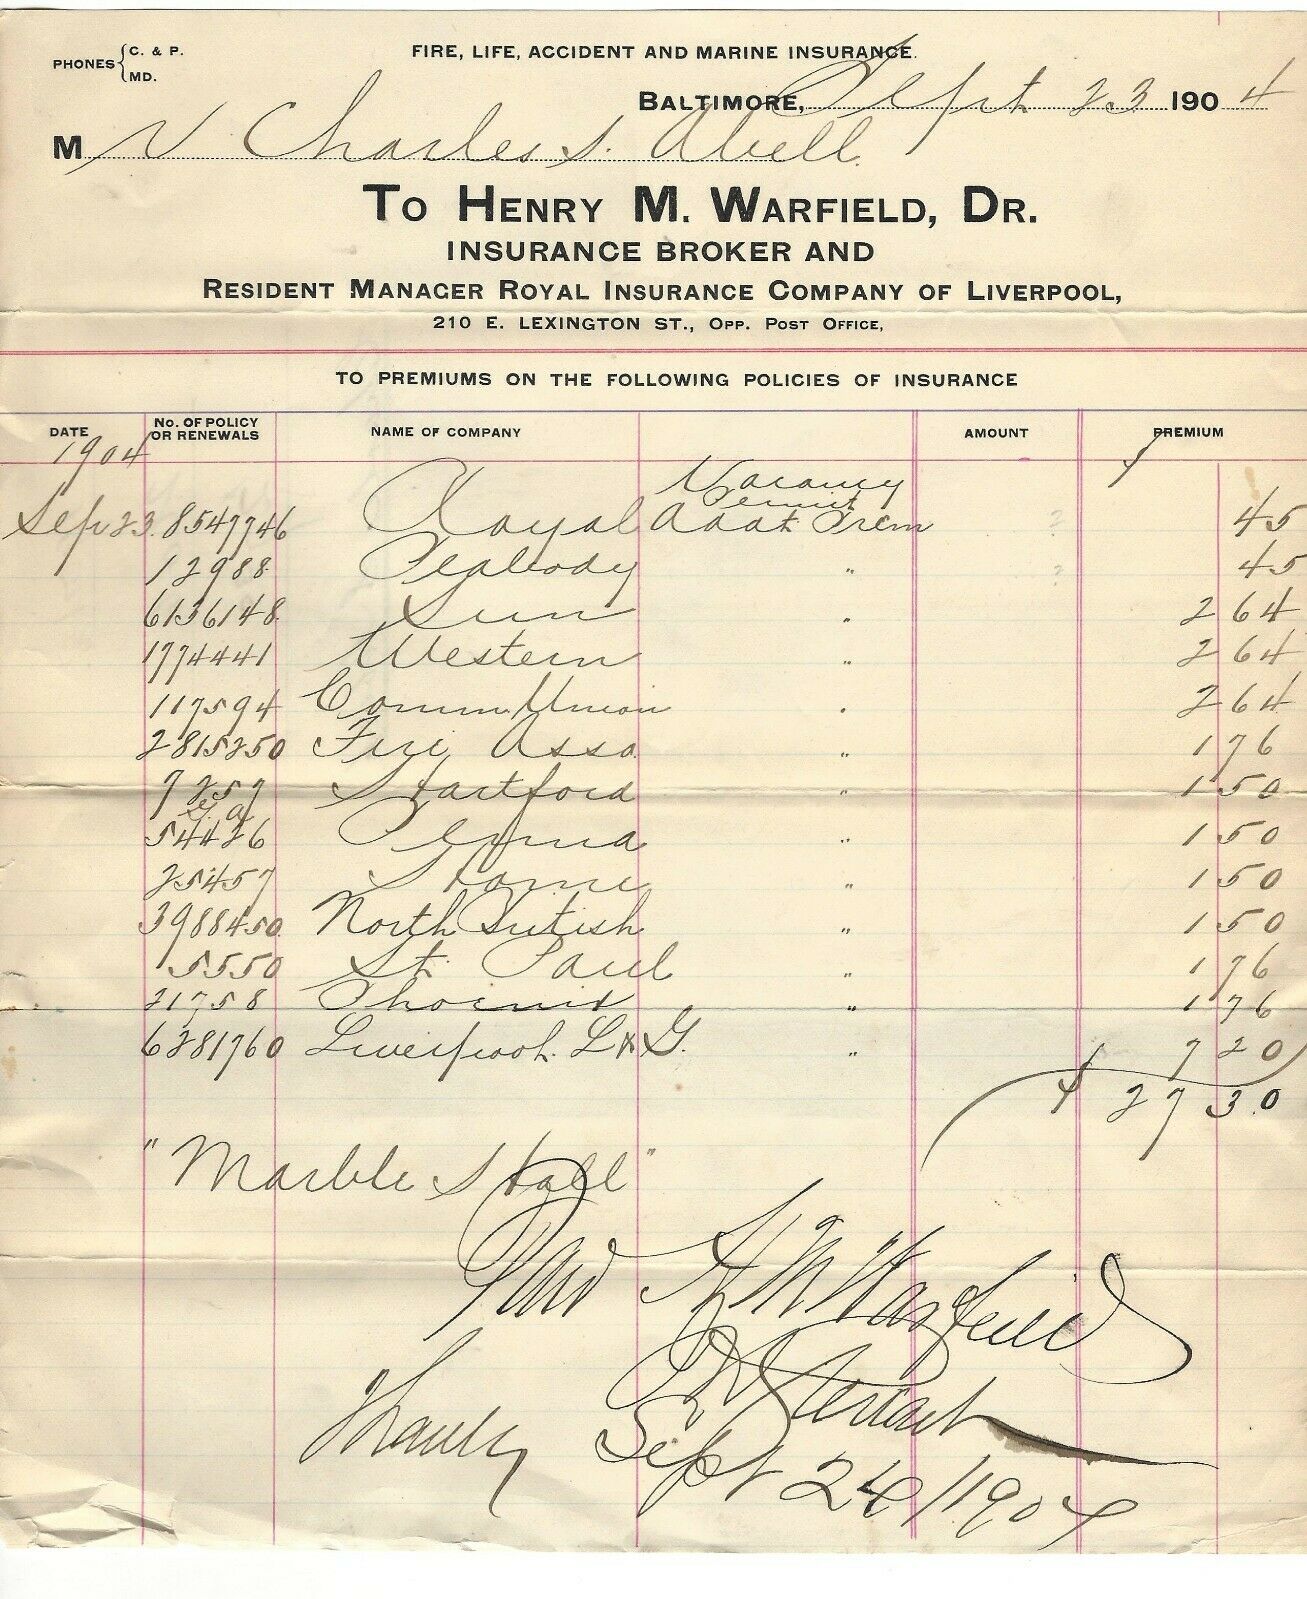 PHONES { C. & P.
MD.
FIRE, LIFE, ACCIDENT AND MARINE INSURANCE.
BALTIMORE, Sept 23 1904
Mr Charles S. Abell
TO HENRY M. WARFIELD, DR.
INSURANCE BROKER AND
RESIDENT MANAGER ROYAL INSURANCE COMPANY OF LIVERPOOL,
210 E. LEXINGTON ST., OPP. POST OFFICE,
TO PREMIUMS ON THE FOLLOWING POLICIES OF INSURANCE
DATE No. OF POLICY OR RENEWALS NAME OF COMPANY AMOUNT PREMIUM
1904 $
Vacancy
Permit
Sep 23. 8547746 Royal Addt Prem 45
12988 Peabody " 45
6136148 Sun " 2 64
1774441 Western " 2 64
117594 Comm Union " 2 64
2815250 Fire Asso. " 1 76
7257 Hartford " 1 50
54426 Penna " 1 50
25457 Home " 1 50
3988450 North British " 1 50
5550 St. Paul " 1 76
21758 Phoenix " 1 76
6281760 Liverpool. L & G. " 7 20
$ 27 30
"Marble Hall"
Paid H M Warfield
Stewart
Thanks Sept 24/1904